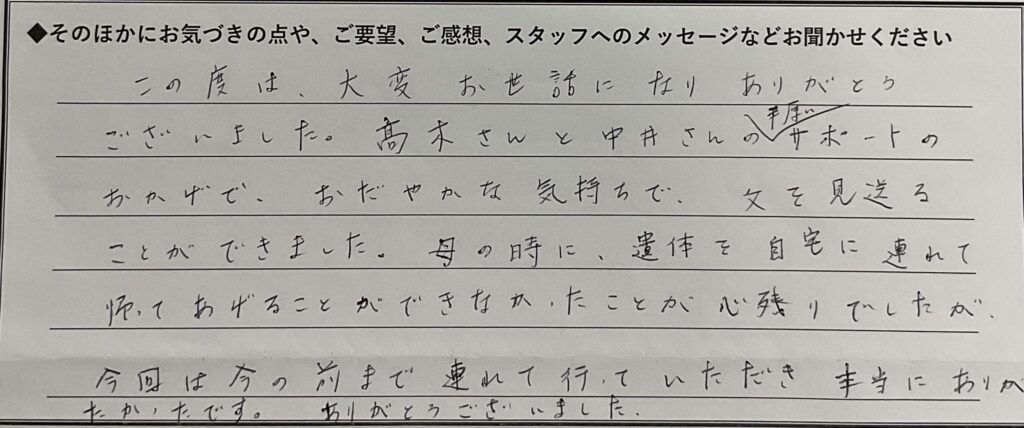 ◆そのほかにお気づきの点や、ご要望、ご感想、スタッフへのメッセージなどお聞かせください
この度は、大変 お世話に なり ありがとう
手厚い
ございました。髙木さんと中井さんの サポートの
おかげで、おだやかな気持ちで、父を見送る
ことができました。母の時に、遺体を自宅に連れて
帰ってあげることができなかったことが心残りでしたが、
今回は 前まで連れて行っていただき 本当にありが
たかったです。ありがとうございました。